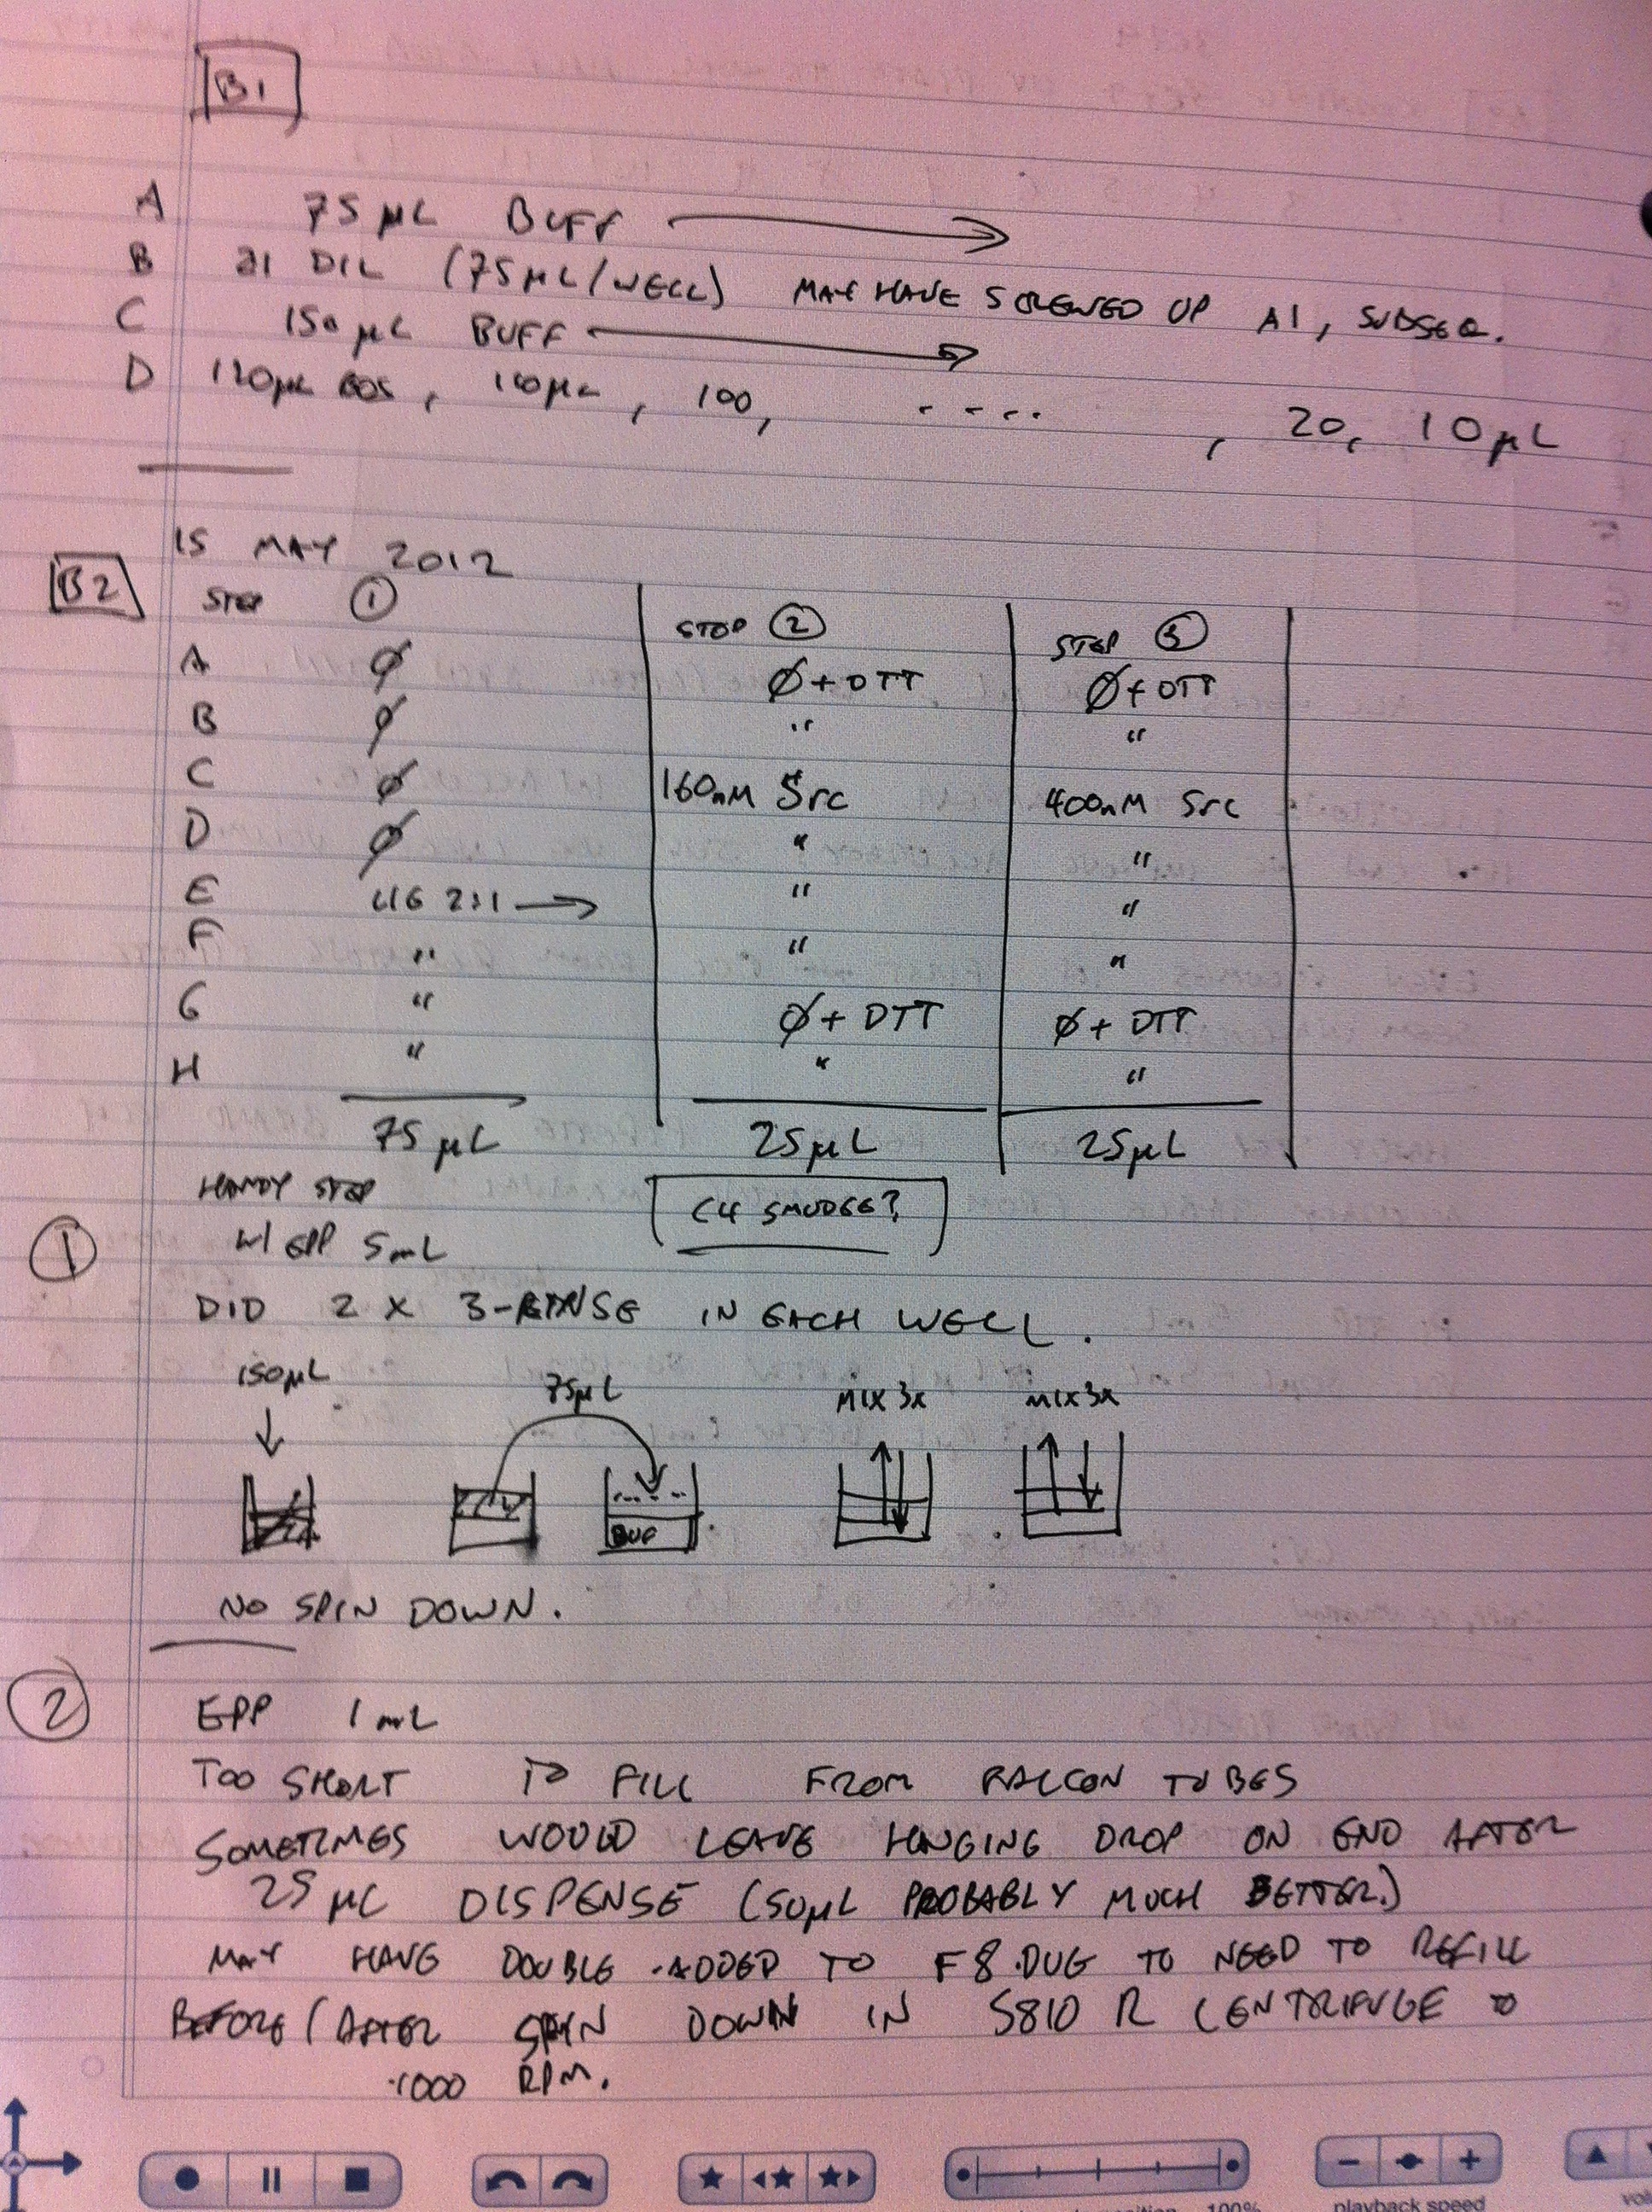 B1
A 75 µL BUFF
B 2:1 DIL (75 µL/WELL) MAY HAVE SCREWED UP A1, SUBSEQ.
C 150 µL BUFF
D 120µL BOS, 110µL, 100, ...., 20, 10 µL
15 MAY 2012
B2 STEP ① STEP ② STEP ③
A Ø Ø + DTT Ø + DTT
B Ø " "
C Ø 160nM Src 400nM Src
D Ø " "
E LIG 2:1 " "
F " " "
G " Ø + DTT Ø + DTT
H " " "
75 µL 25µL 25µL
HANDY STEP C4 SMUDGE?
① W/ EPP 5mL
DID 2 X 3-RINSE IN EACH WELL.
150µL 75µL MIX 3x MIX 3x
BUF
NO SPIN DOWN.
② EPP 1 mL
TOO SHORT TO FILL FROM FALCON TUBES
SOMETIMES WOULD LEAVE HANGING DROP ON END AFTER
25 µL DISPENSE (50µL PROBABLY MUCH BETTER.)
MAY HAVE DOUBLE-ADDED TO F8 DUE TO NEED TO REFILL
BEFORE/AFTER SPIN DOWN IN 5810 R CENTRIFUGE
1000 RPM.
100% playback speed